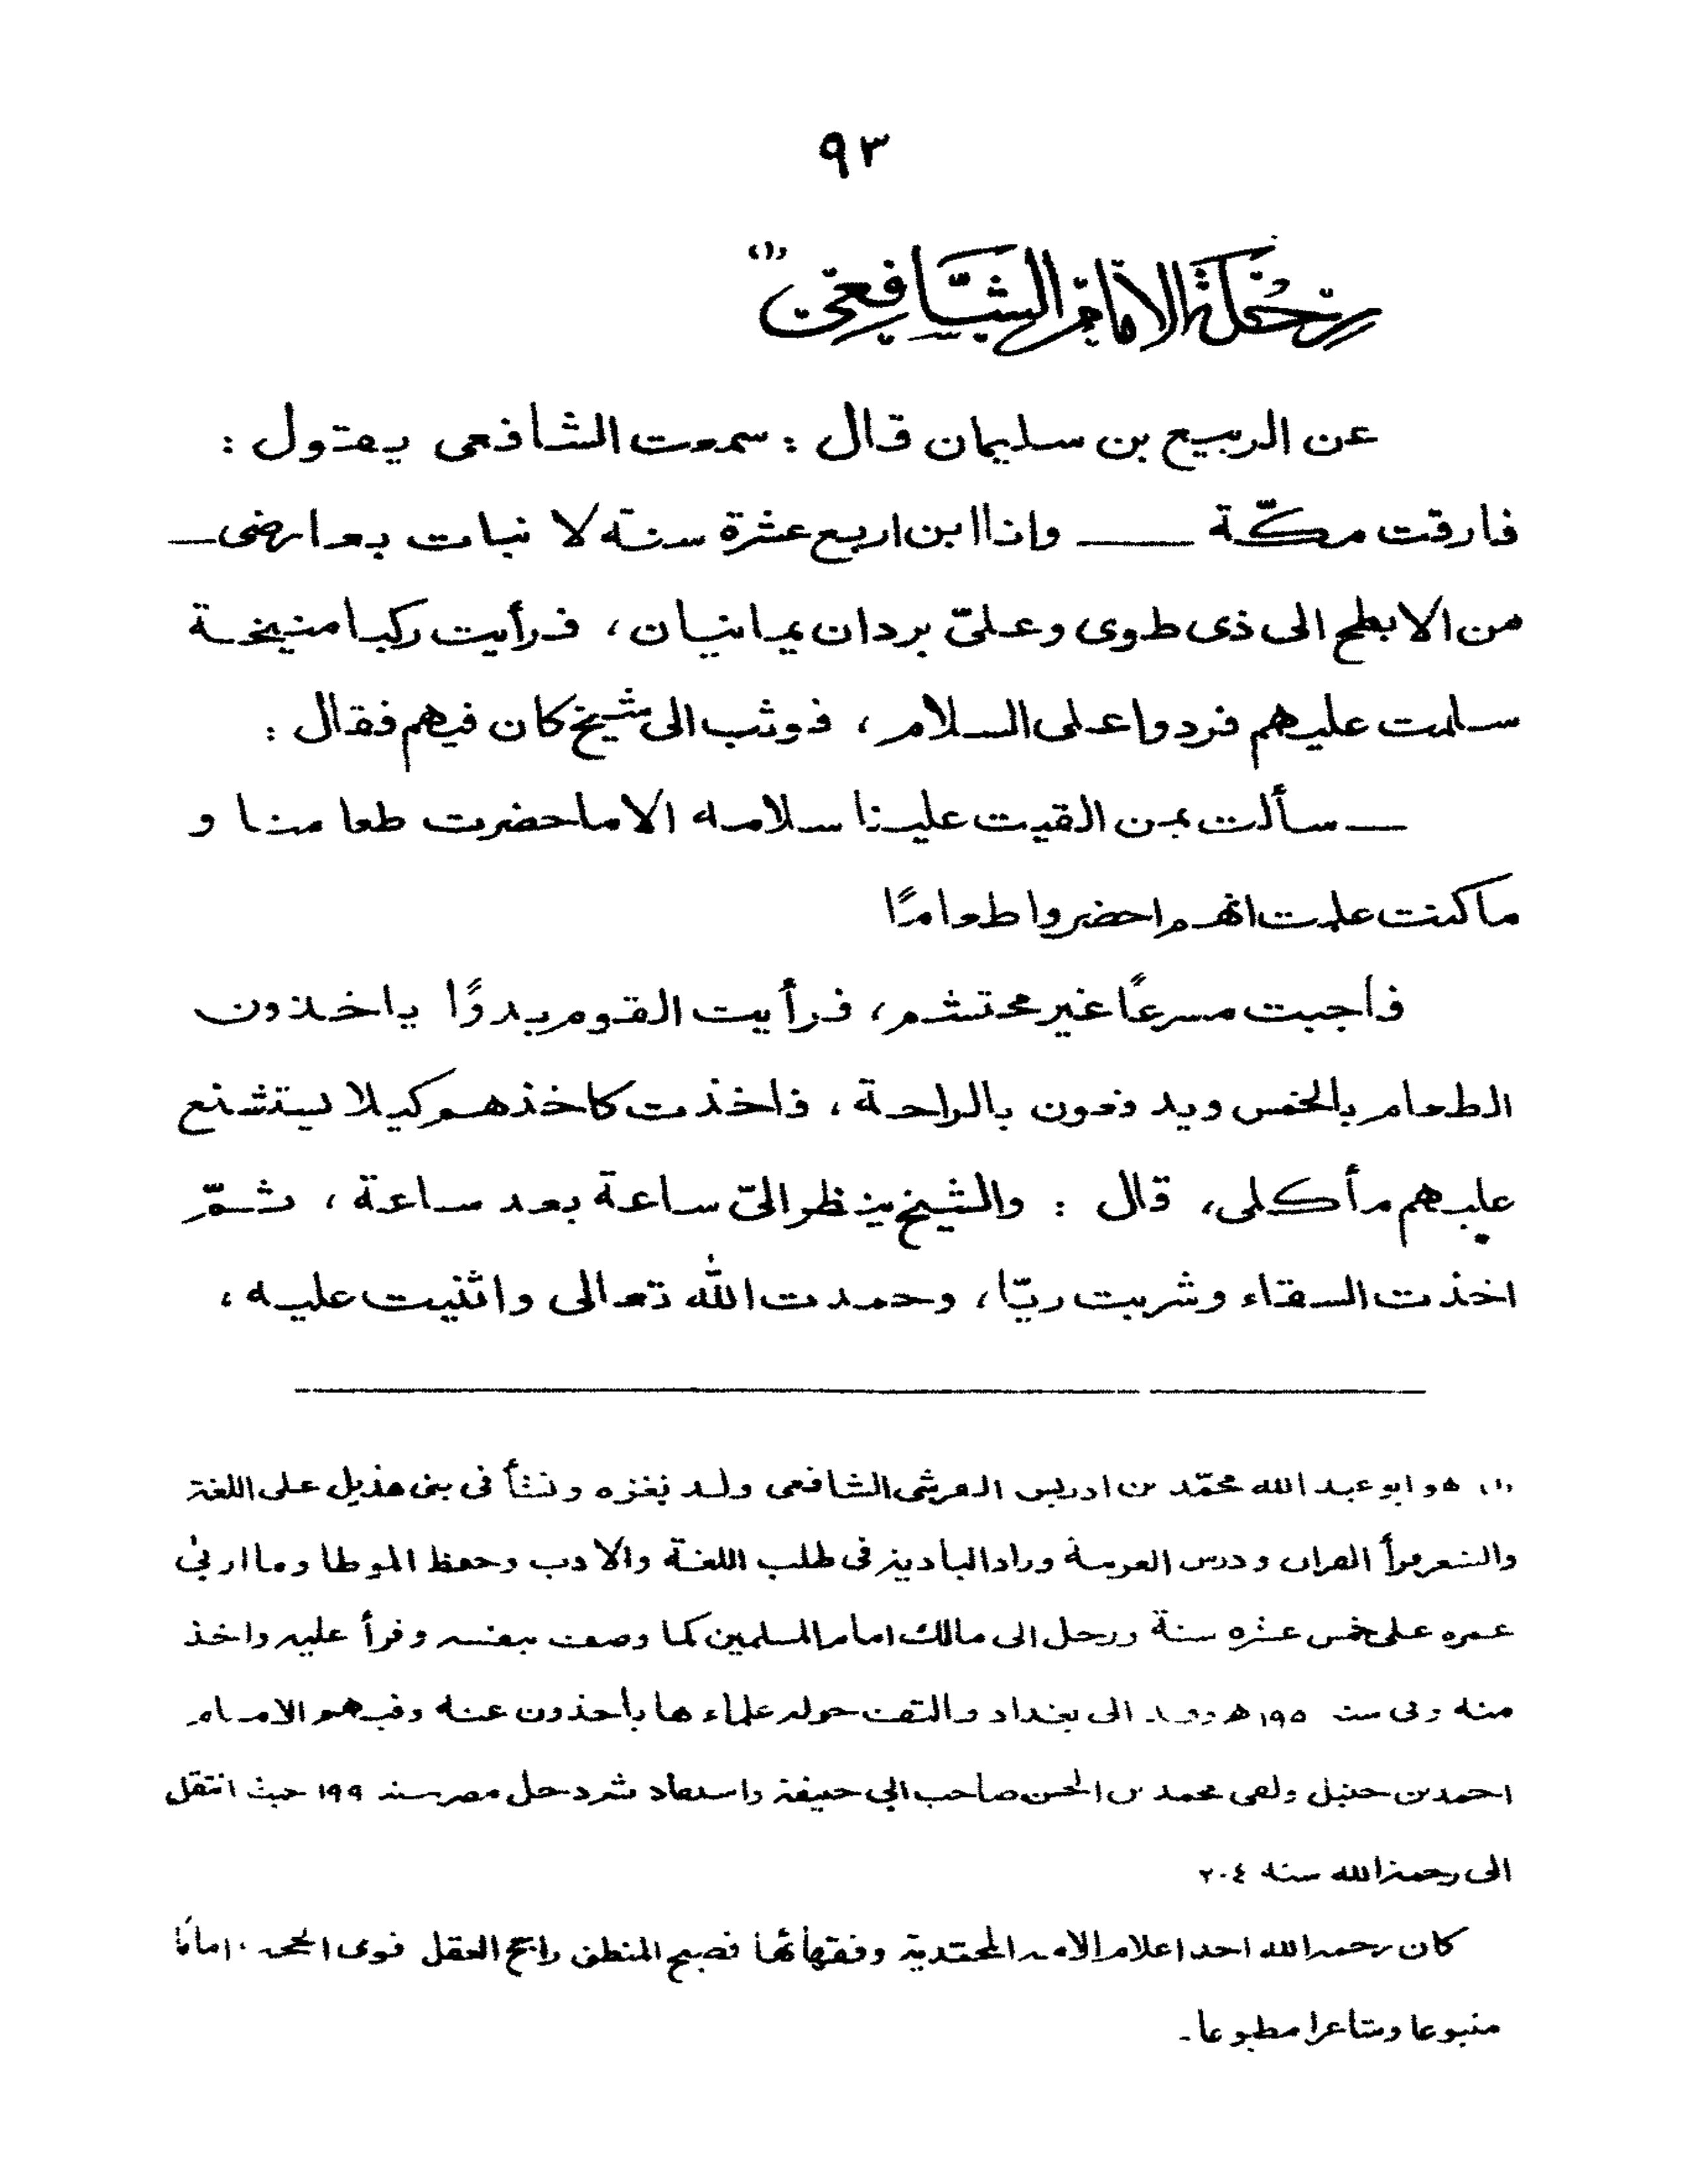 ٩٣
رحلة الامام الشافعي (١)
عن الربيع بن سليمان قال : سمعت الشافعى يقول :
فارقت مكّة ــــ وانا ابن اربع عشرة سنة لا نبات بعارضى ــ
من الابطح الى ذى طوى وعلىّ بردان يمانيان ، فرأيت ركبا منيخة
سلمت عليهم فردوا على السلام ، فوثب الى شيخ كان فيهم فقال :
ــ سألت بمن القيت علينا سلامه الا ما حضرت طعامنا و
ما كنت علمت انهم احضروا طعامًا
فأجبت مسرعًا غير محتشم ، فرأيت القوم بدوًا ياخذون
الطعام بالخمس ويدفعون بالراحة ، فاخذت كاخذهم كيلا يستشنع
عليهم مأكلى ، قال : والشيخ ينظر الىّ ساعة بعد ساعة ، ثمّ
اخذت السقاء وشربت ريّا ، وحمدت الله تعالى واثنيت عليه ،
(١) هو ابو عبد الله محمّد بن ادريس القرشى الشافعى ولد بغزه ونشأ فى بنى هذيل على اللغة
والشعر قرأ القران ودرس العربية وراد البادية فى طلب اللغة والادب وحفظ الموطا وما اربى
عمره على خمس عشره سنة ورحل الى مالك امام المسلمين كما وصفت بنفسه وقرأ عليه واخذ
منه وفى سنة ١٩٥ھ وفد الى بغداد والتفت حوله علماءها يأخذون عنه وفيهم الامام
احمد بن حنبل ولقى محمد بن الحسن صاحب ابي حنيفة واستفاد ثم دخل مصر سنه ١٩٩ حيث انتقل
الى رحمة الله سنه ٢٠٤
كان رحمه الله احد اعلام الامه المحمدية وفقهائها فصيح المنطق راجح العقل قوى الحجى ، امامًا
متبوعا وشاعرا مطبوعا ـ